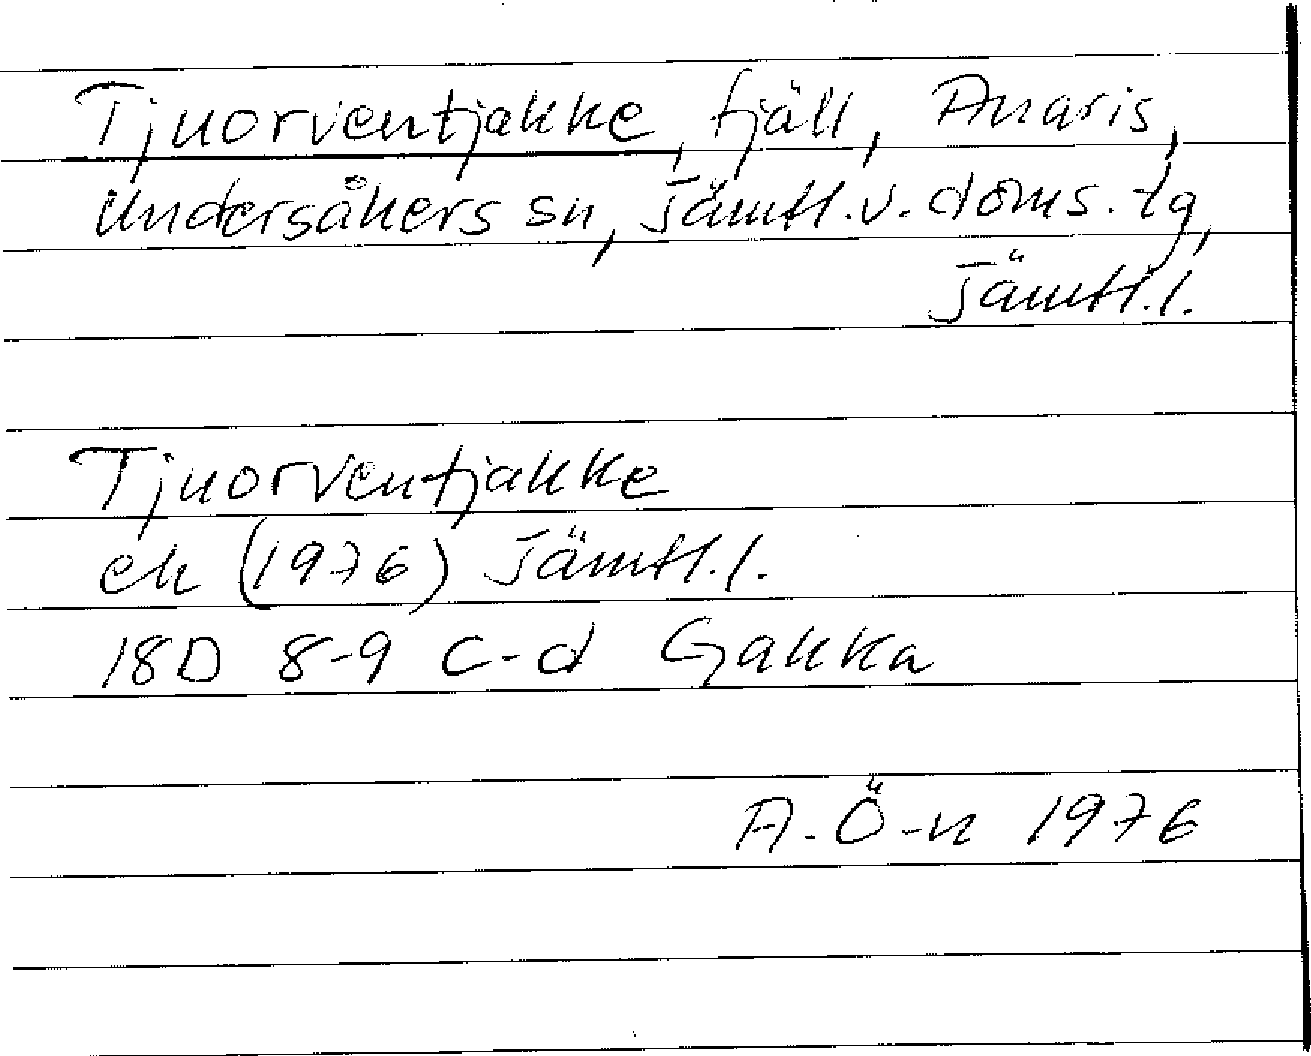 Tjuorventjakke, fjäll, Anaris,
Undersåkers sn, Jämtl.v. doms.tg,
Jämtl.l.
Tjuorventjakke
ek (1976) Jämtl.l.
18D 8-9 c-d Gakka
A-Ö-n 1976